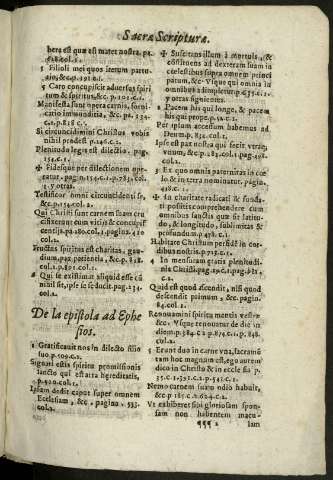 Sacræ Scripturæ.
bera est quæ est mater nostra. pa.
col.1.
Filioli mei quos iterum partu-
rio, &c. p.191.col.1.
Caro concupiscit aduersus spiri
tum & spiritus, &c. p.101.c.1.
Manifesta sunt opera carnis, forni-
catio immunditia, &c. pa. 334.
Si circuncidimini Christus vobis
nihil prodest p.146.c.2.
Plenitudo legis est dilectio. pag.
154.c.1.
Fides quę per dilectionem ope-
ratur, pag.
y otras.
Testificor omni circuncidenti se,
&c. p.154.col.2.
Qui Christi sunt carnem suam cru
cifixerunt cum vitijs & concupis-
centijs. pa.180.col.1. pagin. 430.
col.1.
Fructus spiritus est charitas, gau-
dium patientia, &c. p.818.col.
2. p.801.col.1.
Qui se existimat aliquid esse cũ
nihil sit, ipse se seducit. pag.234.
col.2.
De la epistola ad Ephe
sios.
Gratificauit nos in dilecto filio
suo p.109.c.2.
Signati estis spiritu promissionis
sancto qui est arra hęreditatis,
p.420.col.1.
Ipsum dedit caput super omnem
Ecclesiam, &c. pagina. 533.
col.2.
Suscitans illum à mortuis, &
constituens ad dexteram suam in
cœlestibus supra omnem princi
patum, &c. Y que vni omnia in
omnibus adimpletur p.
y otras siguientes.
Pacem his qui longe, & pacem
his qui prope. p.54.c.2.
Per ipsum accessum habemus ad
Deum. p.8.col.2.
Ipse est pax nostra qui fecit vtraq;
vnum, &c. p.283.col.1. pag.498.
col.2.
Ex quo omnis paternitas in cœ
lo & in terra nominatur. pagin.
438.c.1.
In charitate radicati & funda-
ti possitis comprehendere cum
omnibus sanctis quæ sit latitu-
do, & longitudo, sublimitas &
profundum p.478.c.1.
Habitare Christum per fidẽ in cor-
dibus nostris. p.725.c.1.
In mensuram ęratis plenitudi-
nis Christi. pag.
c.1.
Quid est quod ascendit, nisi quod
descendit primum, &c. pagin.
84.col.2.
Renouamini spiritu mentis vestræ
&c. Vsque renouatur de die in
diem. p.384.c.2.
col.2.
Erunt duo in carne vna, sacramẽ
tum hoc magnum est, ego autem
dico in Christo & in ecclesia p.
35.c.1.393.c.1.p.543.c.1.
Nemo carnem suam odio habuit,
&c. p.185.c.2.624.c.2.
Vt exhiberet sibi gloriosam spon-
sam non habentem macu-
¶¶¶ 2 lam